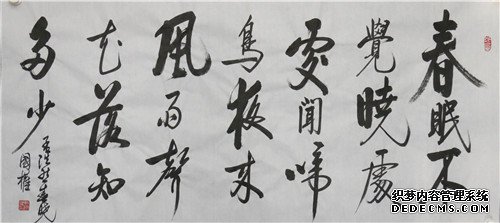 春眠不
覺曉處
處聞啼
鳥夜来
風雨聲
花落知
多少
孟浩然春曉
织梦内容管理系统
DEDECMS.COM